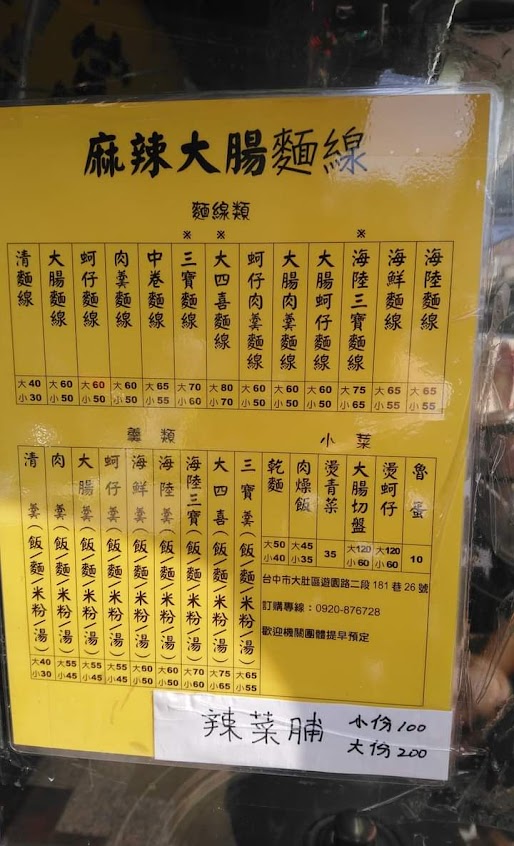 麻辣大腸麵線
麵線類
清麵線 大40 小30
大腸麵線 大60 小50
蚵仔麵線 大60 小50
肉羹麵線 大60 小50
中卷麵線 大65 小55
※三寶麵線 大70 小60
※大四喜麵線 大80 小70
蚵仔肉羹麵線 大60 小50
大腸肉羹麵線 大60 小50
大腸蚵仔麵線 大60 小50
※海陸三寶麵線 大75 小65
海鮮麵線 大65 小55
海陸麵線 大65 小55
羹類
清羹(飯/麵/米粉/湯) 大40 小30
肉羹(飯/麵/米粉/湯) 大55 小45
大腸羹(飯/麵/米粉/湯) 大55 小45
蚵仔羹(飯/麵/米粉/湯) 大55 小45
海鮮羹(飯/麵/米粉/湯) 大60 小50
海陸羹(飯/麵/米粉/湯) 大60 小50
海陸三寶(飯/麵/米粉/湯) 大70 小60
大四喜(飯/麵/米粉/湯) 大75 小65
三寶羹(飯/麵/米粉/湯) 大65 小55
小菜
乾麵 大50 小40
肉燥飯 大45 小35
燙青菜 35
大腸切盤 大120 小60
燙蚵仔 大120 小60
魯蛋 10
台中市大肚區遊園路二段181巷26號
訂購專線：0920-876728
歡迎機關團體提早預定
辣菜脯 小份100
大份200